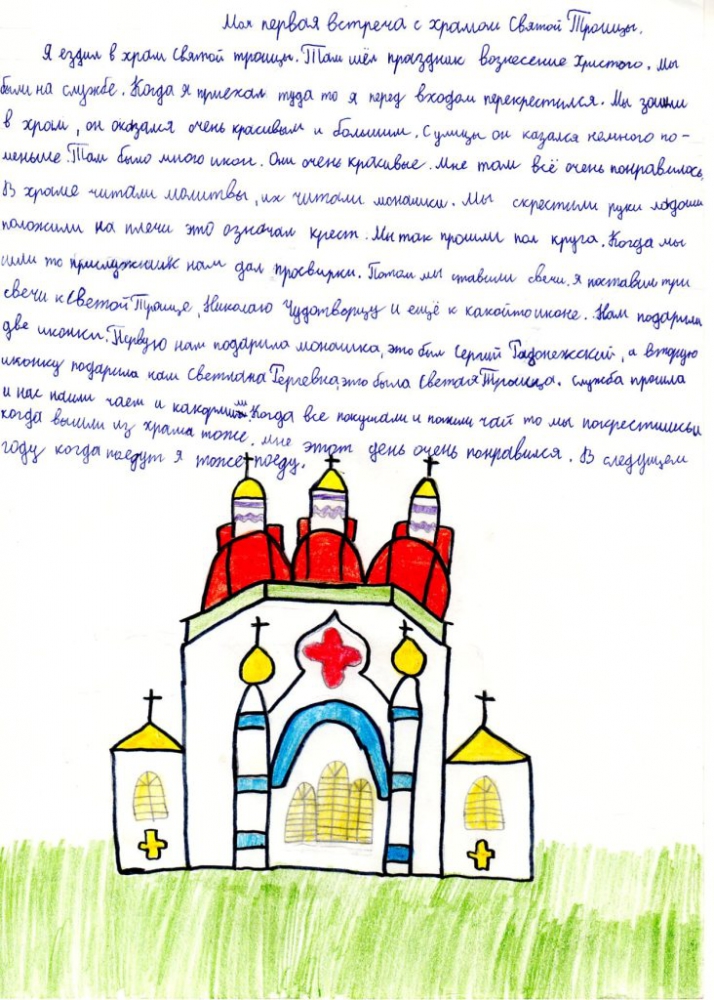 Моя первая встреча с храмом Святой Троицы.
Я ездил в храм Святой троицы. Там шёл праздник вознесение Христого. Мы
были на службе. Когда я приехал туда то я перед входом перекрестился. Мы зашли
в храм, он оказался очень красивым и большим. С улицы он казался немного по-
меньше. Там было много икон. Они очень красивые. Мне там всё очень понравилось.
В храме читали молитвы, их читали монашки. Мы скрестили руки ладоши
положили на плечи это означал крест. Мы так прошли пол круга. Когда мы
шли то прислужник нам дал просвирки. Потом мы ставили свечи. Я поставил три
свечи к Светой Троице, Николаю Чудотворцу и ещё к какойто иконе. Нам подарили
две иконки. Первую нам подарила монашка, это был Сергий Радонежский, а вторую
иконку подарила нам Светлана Гергевна, это была Светая Троица. служба прошла
и нас поили чаем и накормили. Когда все покушали и попили чай то мы покрестились
когда вышли из храма тоже. мне этот день очень понравился. В следущем
году когда поедут я тоже поеду.